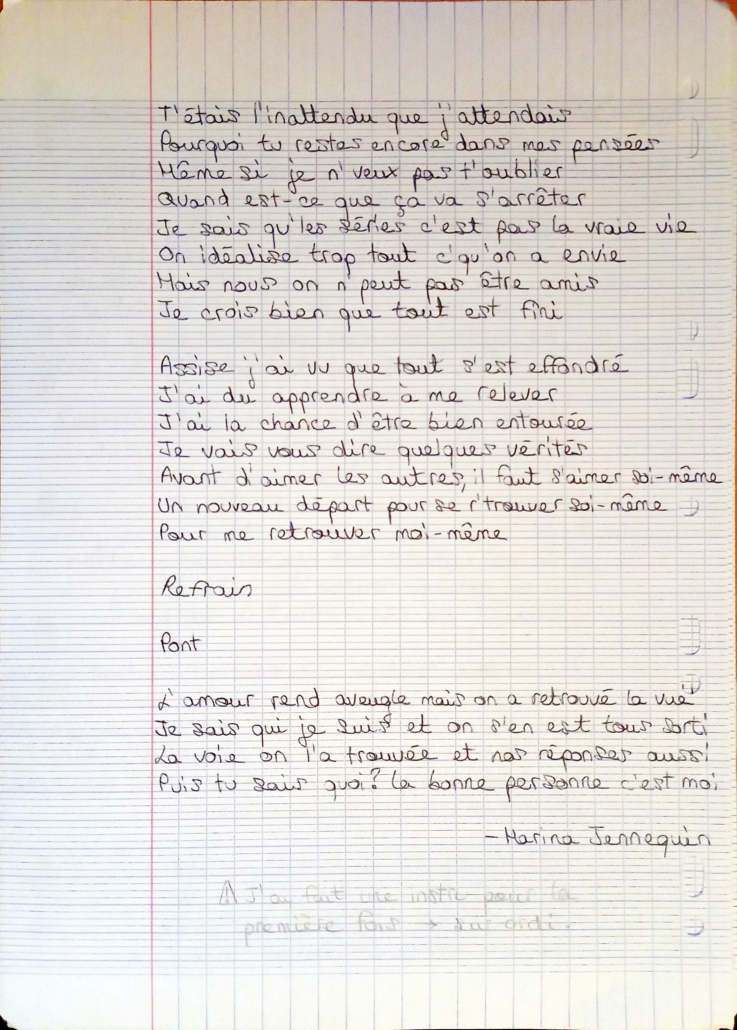 T'étais l'inattendu que j'attendais
Pourquoi tu restes encore dans mes pensées
Même si je n'veux pas t'oublier
Quand est-ce que ça va s'arrêter
Je sais qu'les séries c'est pas la vraie vie
On idéalise trop tout c'qu'on a envie
Mais nous on n'peut pas être amis
Je crois bien que tout est fini
Assise j'ai vu que tout s'est effondré
J'ai du apprendre à me relever
J'ai la chance d'être bien entourée
Je vais vous dire quelques vérités
Avant d'aimer les autres, il faut s'aimer soi-même
Un nouveau départ pour se r'trouver soi-même
Pour me retrouver moi-même
Refrain
Pont
L'amour rend aveugle mais on a retrouvé la vue
Je sais qui je suis et on s'en est tous sorti
La voie on l'a trouvée et nos réponses aussi
Puis tu sais quoi? la bonne personne c'est moi
-Marina Jennequin
⚠ J'ai fait une instru pour la
première fois → sur ordi.